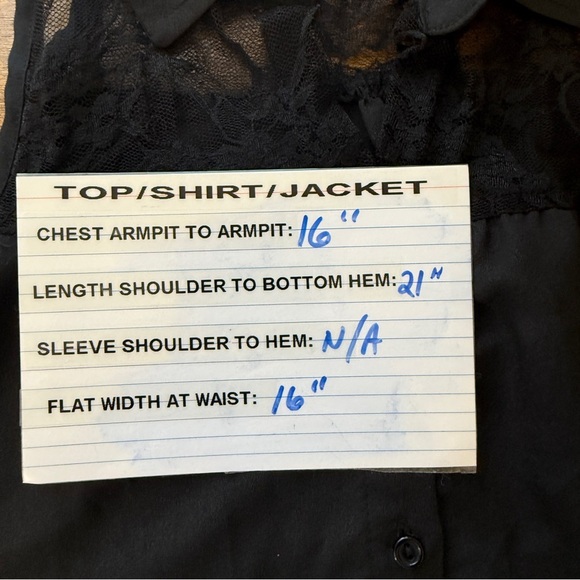 TOP/SHIRT/JACKET
CHEST ARMPIT TO ARMPIT: 16"
LENGTH SHOULDER TO BOTTOM HEM: 21"
SLEEVE SHOULDER TO HEM: N/A
FLAT WIDTH AT WAIST: 16"